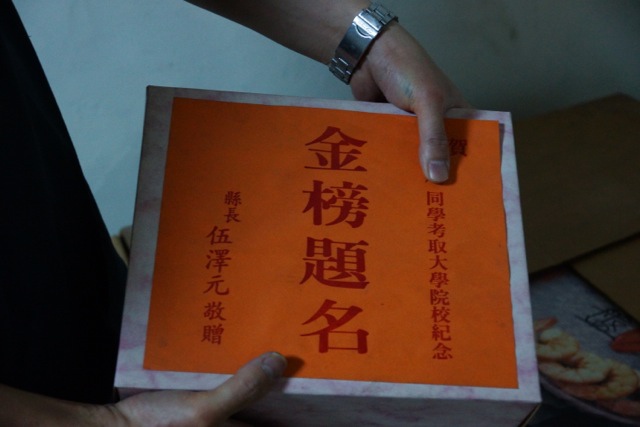 賀
同學考取大學院校紀念
金榜題名
縣長 伍澤元 敬贈